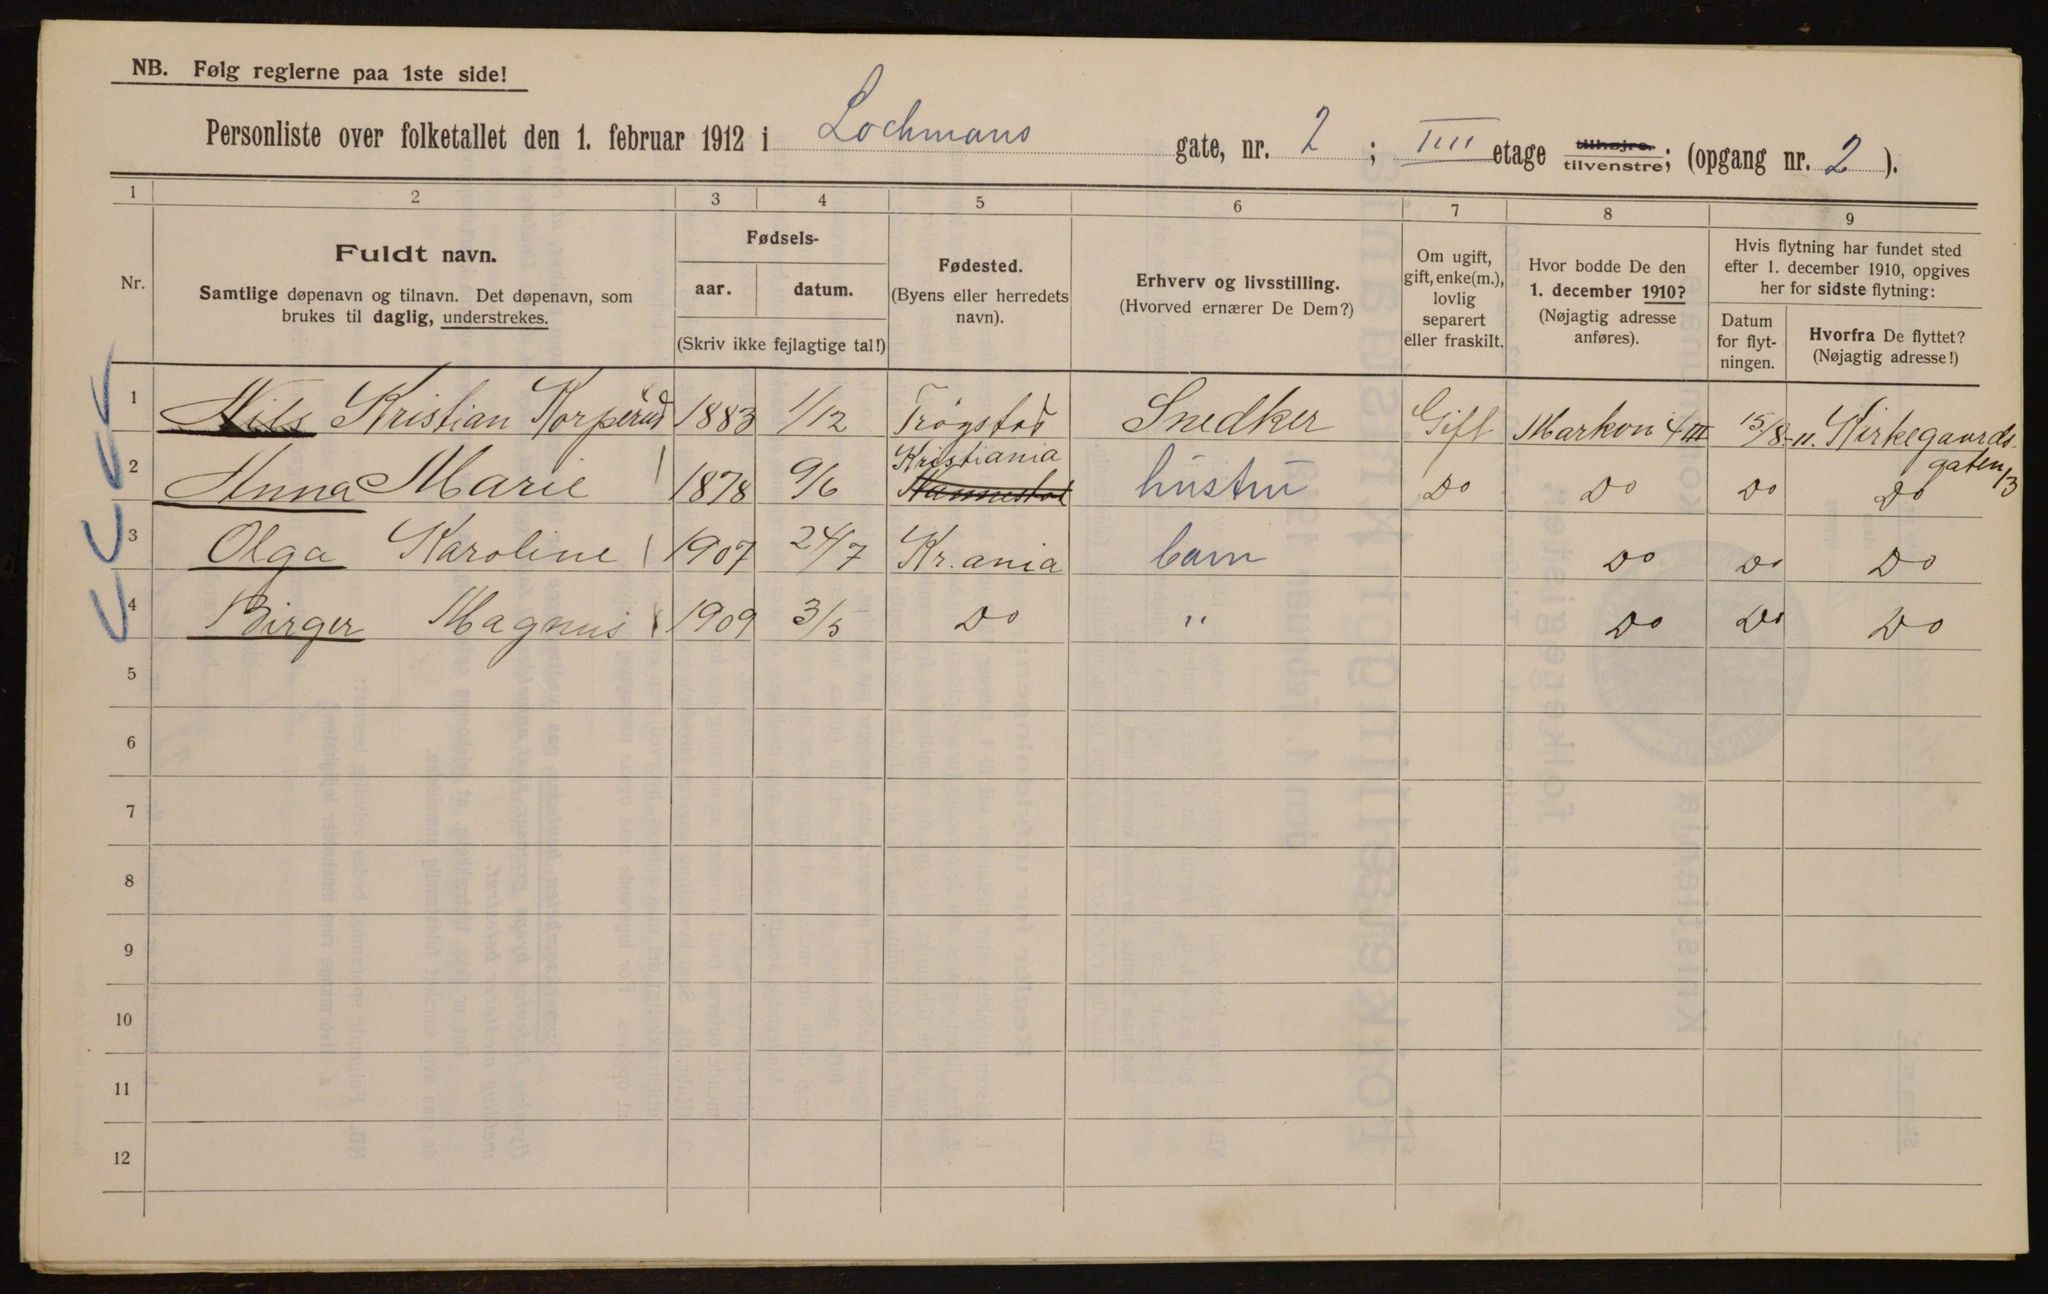 NB. Følg reglerne paa 1ste side!
Personliste over folketallet den 1. februar 1912 i Lochmans gate, nr. 2 ; IIII etage tilhøjre. tilvenstre; (opgang nr. 2 ).
1 2 3 4 5 6 7 8 9
Nr.
Fuldt navn.
Samtlige døpenavn og tilnavn. Det døpenavn, som
brukes til daglig, understrekes.
Fødsels-
aar. datum.
(Skriv ikke fejlagtige tal!)
Fødested.
(Byens eller herredets
navn).
Erhverv og livsstilling.
(Hvorved ernærer De Dem?)
Om ugift,
gift, enke(m.),
lovlig
separert
eller fraskilt.
Hvor bodde De den
1. december 1910?
(Nøjagtig adresse
anføres).
Hvis flytning har fundet sted
efter 1. december 1910, opgives
her for sidste flytning:
Datum
for flyt-
ningen.
Hvorfra De flyttet?
(Nøjagtig adresse!)
1 Nils Kristian Korperud 1883 1/12 Trøgstad Snedker Gift Markvn 4 III 15/8-11. Kirkegaards-
gaten 13
2 Anna Marie 1878 9/6 Kristiania hustru Do Do Do Do
3 Olga Karoline 1907 24/7 Kr.ania barn Do Do Do
4 Birger Magnus 1909 3/5 Do " Do Do Do
5
6
7
8
9
10
11
12